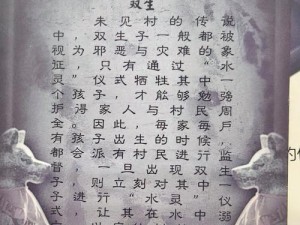 双生
朱见村的传说
中，双生子一般都被
视为邪恶与灾难的象
征，只有通过“水
灵”仪式牺牲其中一
个孩子，才能够勉强
护得家人与村民周
全。因此，每家每户
有孩子出生的时候，
都会派有村民进行监
督，一旦出现双生
子，则立刻对其中一
子进行“水灵”仪
式，让其在水中